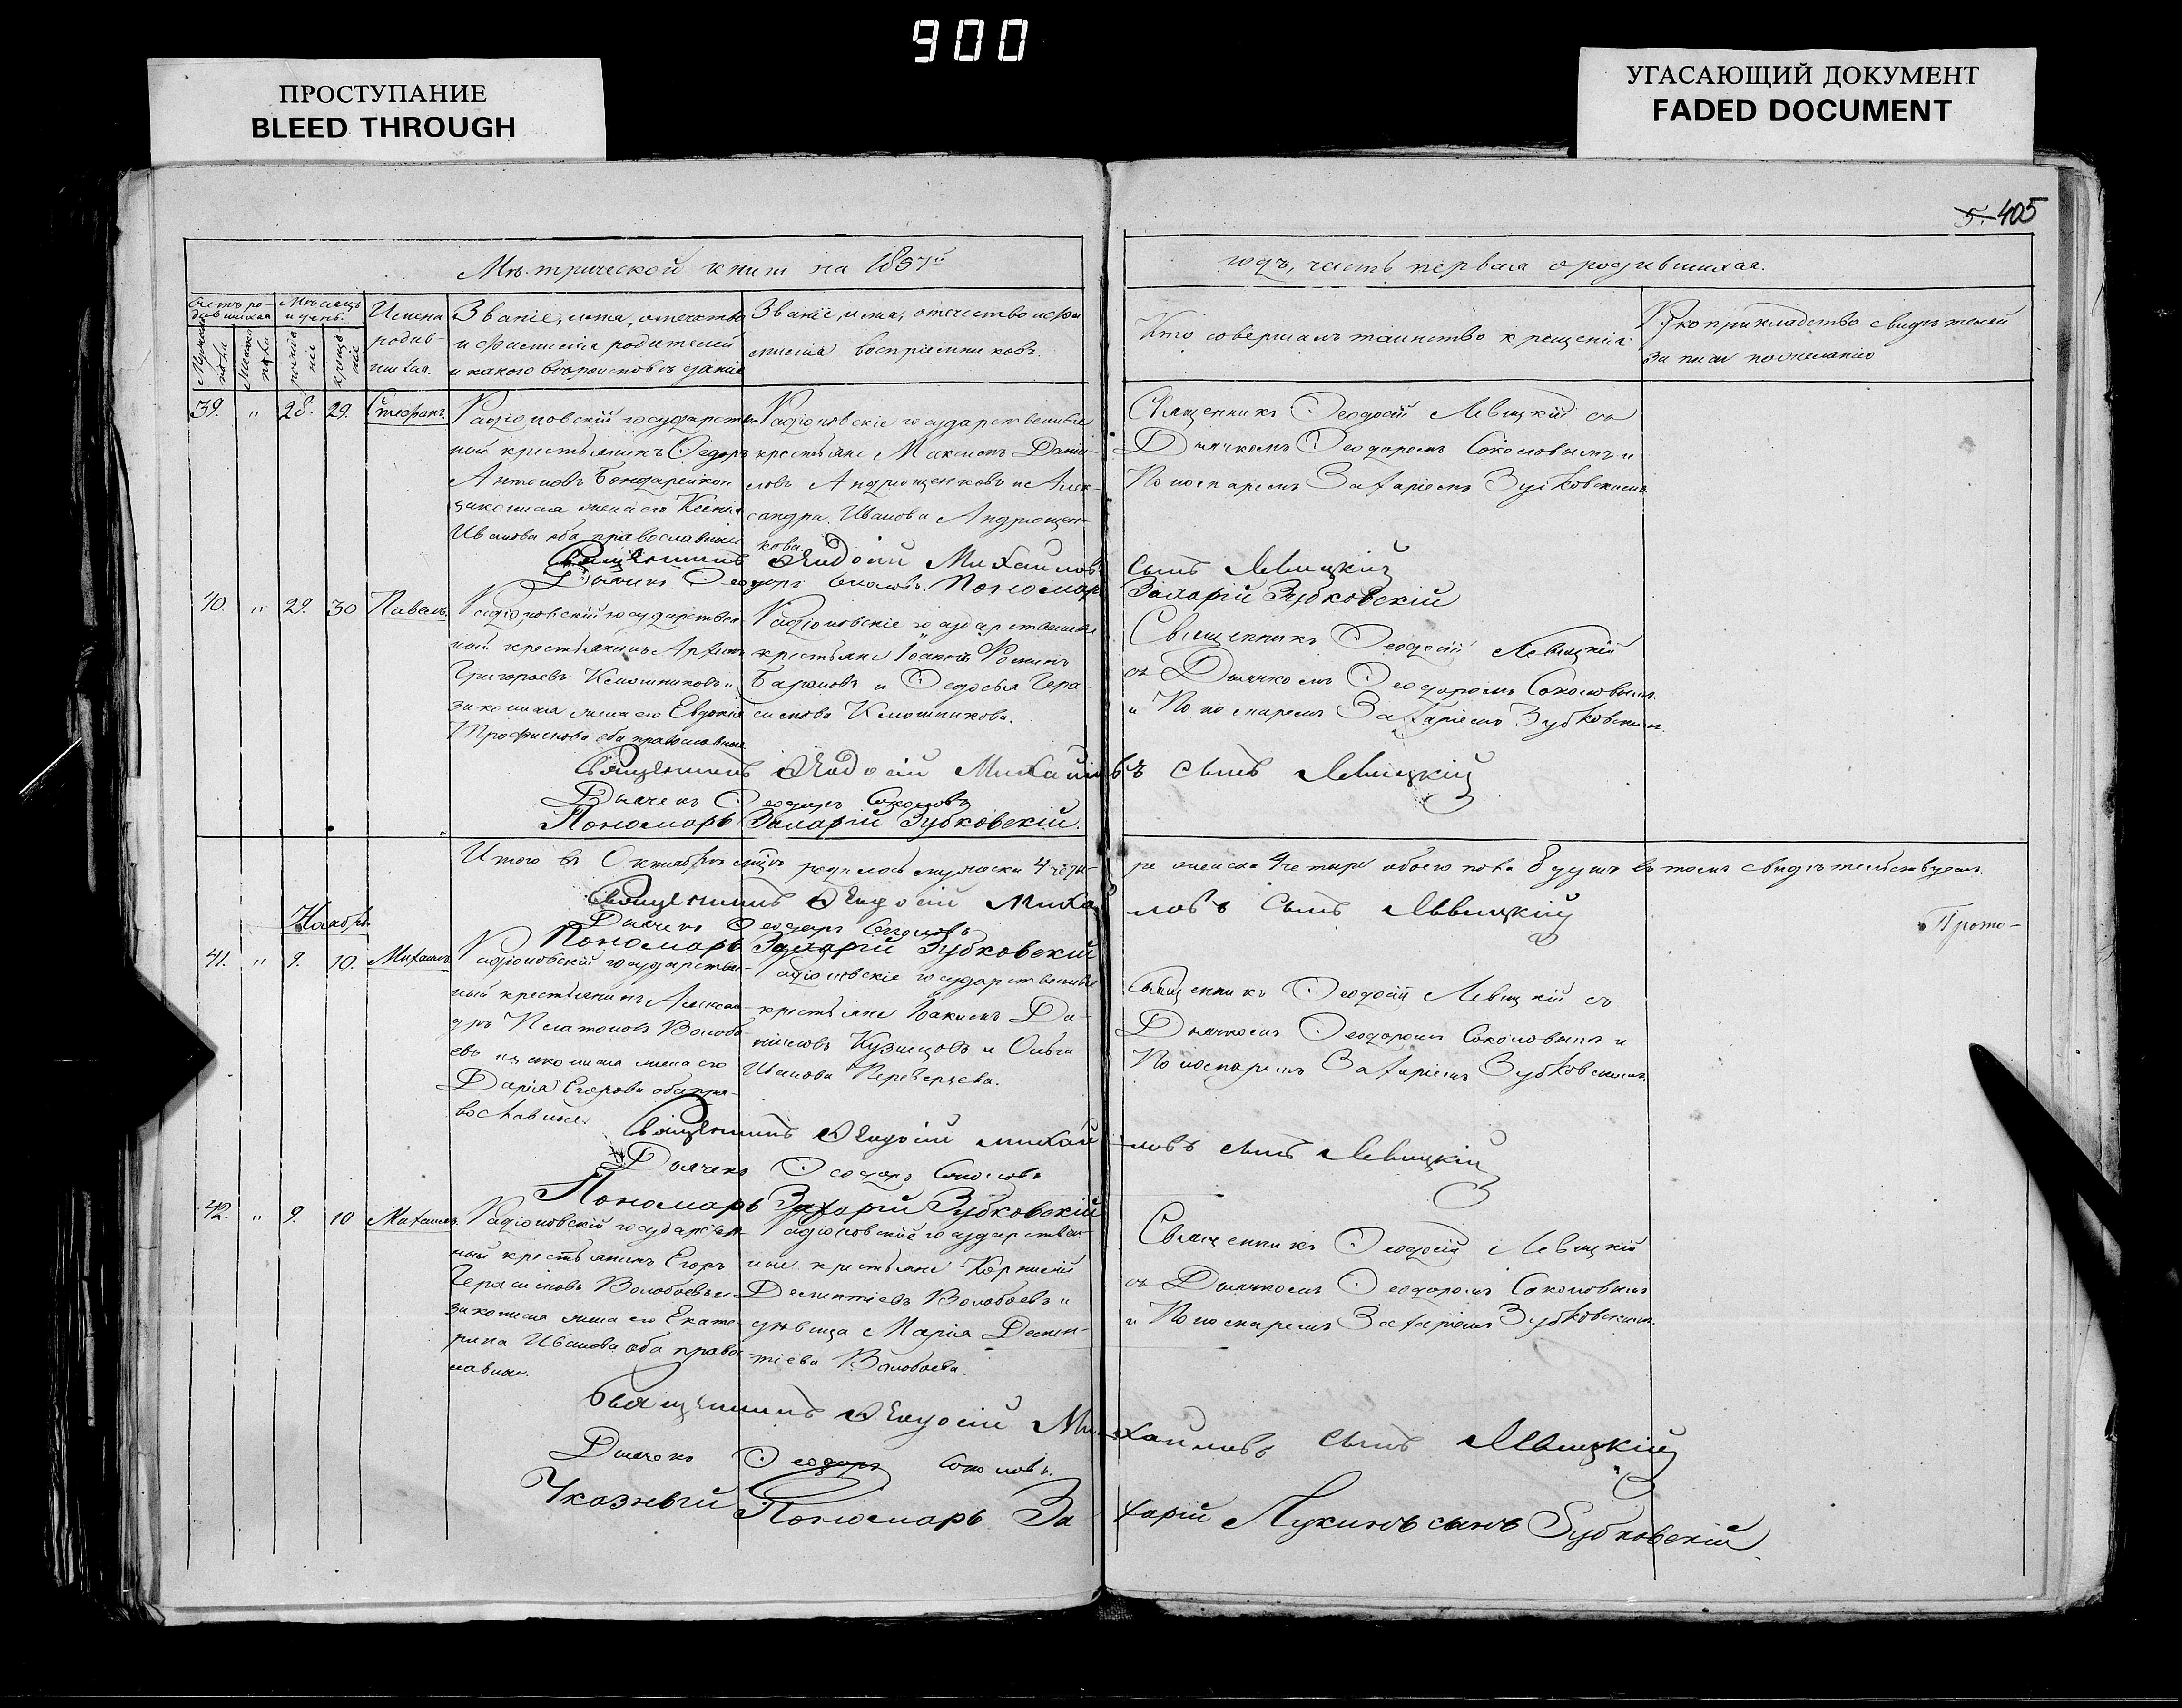 900
ПРОСТУПАНИЕ
BLEED THROUGH
УГАСАЮЩИЙ ДОКУМЕНТ
FADED DOCUMENT
5. 405
Метрической книги на 1857й
годъ, часть первая о родившихся.
Счетъ родившихся
Мужеска пола
Женска пола
Мѣсяцъ и день.
рожденіе
крещеніе
Имена родившихся.
Званіе, имя, отечество
и фамилія родителей
и какого вѣроисповѣданія
Званіе, имя, отечество и фа
милія воспріемниковъ.
Кто совершалъ таинство крещенія
Рукоприкладство свидѣтелей
записи по желанію
39. " 28. 29. Стефанъ.
Радіоновскій государствен
ный крестьянинъ Ѳедоръ
Антоновъ Бондаренко и
законная жена его Ксенія
Иванова оба православные
Радіоновскіе государственные
крестьяне Максимъ Дани-
ловъ Андрющенковъ и Алек-
сандра Иванова Андрющен-
кова
Священникъ Ѳеодосій Левицкій съ
Дьячкомъ Ѳеодоромъ Соколовымъ и
Пономаремъ Захаріемъ Зубковскимъ.
Священникъ Ѳеодосій Михаиловъ сынъ Левицкій
Дьячекъ Ѳеодоръ Соколовъ. Пономарь Захарій Зубковскій
40. " 29. 30 Павелъ.
Радіоновскій государствен
ный крестьянинъ
Григорьевъ Клюшниковъ и
законная жена его Евдокія
Трофимова оба православные
Радіоновскіе государственные
крестьяне Іоаннъ
и Ѳедосья Гера-
симова Клюшникова.
Священникъ Ѳеодосій Левицкій
съ Дьячкомъ Ѳеодоромъ Соколовымъ.
и Пономаремъ Захаріемъ Зубковскимъ.
Священникъ Ѳеодосій Михаиловъ сынъ Левицкій
Дьячекъ Ѳеодоръ Соколовъ
Пономарь Захарій Зубковскій.
Итого въ Октябрѣ мцѣ родилось мужеска 4 четы-
ре женска 4 четыре обоего пола 8 душъ въ томъ свидѣтельствуемъ.
Священникъ Ѳеодосій Михаиловъ сынъ Левицкій
Дьячекъ Ѳеодоръ Соколовъ
Пономарь Захарій Зубковскій
Прото-
Ноябрь
41. " 9. 10. Михаилъ.
Радіоновскій государствен-
ный крестьянинъ Алексан-
дръ Платоновъ Волобо-
евъ и законная жена его
Дарія Егорова оба пра-
вославные.
Радіоновскіе государственные
крестьяне Іоакимъ Да-
ниловъ Кузнецовъ и Ольга
Иванова Переверзева.
Священникъ Ѳеодосій Левицкій съ
Дьячкомъ Ѳеодоромъ Соколовымъ и
Пономаремъ Захаріемъ Зубковскимъ.
Священникъ Ѳеодосій Михаиловъ сынъ Левицкій
Дьячекъ Ѳеодоръ Соколовъ
Пономарь Захарій Зубковскій
42. " 9. 10 Михаилъ.
Радіоновскій государствен-
ный крестьянинъ Егоръ
Герасимовъ Волобоевъ и
законная жена его Екате-
рина Иванова оба правос
лавные.
Радіоновскіе государствен-
ные крестьяне Корнилій
Дементіевъ Волобоевъ и
дѣвица Марія Демен-
тіева Волобоева.
Священникъ Ѳеодосій Левицкій
съ Дьячкомъ Ѳеодоромъ Соколовымъ
и Пономаремъ Захаріемъ Зубковскимъ.
Священникъ Ѳеодосій Михаиловъ сынъ Левицкій
Дьячекъ Ѳеодоръ Соколовъ.
Указный Пономарь Захарій Лукинъ сынъ Зубковскій